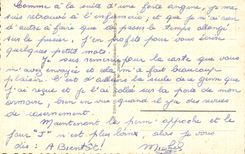 Comme à la suite d'une forte angine, je me
suis retrouvé à l'infirmerie, et que je n'ai rien
d'autre à faire que de passer le temps allongé
sur le pucier, j'en profite pour vous écrire
quelques petits mots.
Je vous remercie pour la carte que vous
m'avez envoyée et cela m'a fait beaucoup
plaisir. C'est d'ailleurs la seule carte que
j'ai reçue et je l'ai collé sur la paroi de mon
armoire, bien en vue quand il y a des revues
de casernement.
Maintenant la perm' approche et le
jour "J" n'est plus loin, alors je vous
dis : A Bientôt!
Michel